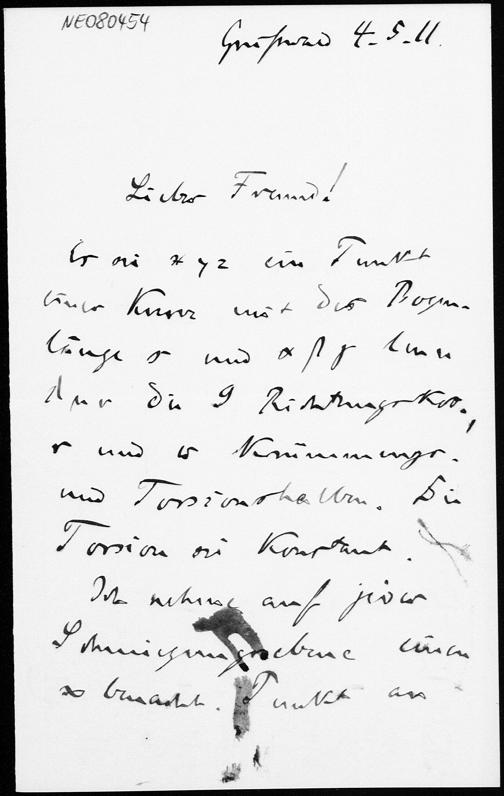 NE080454
Greifswald 4-5-11.
Lieber Freund!
Es sei x y z ein Punkt
einer Kurve mit der Bogen-
länge s und α β γ
die 9 Richtungskos.,
r und Krümmungs-
und Torsions Die
Torsion sei konstant.
Ich nehme auf jeder
Schmiegungsebene einen
∞ benacht. Punkt an